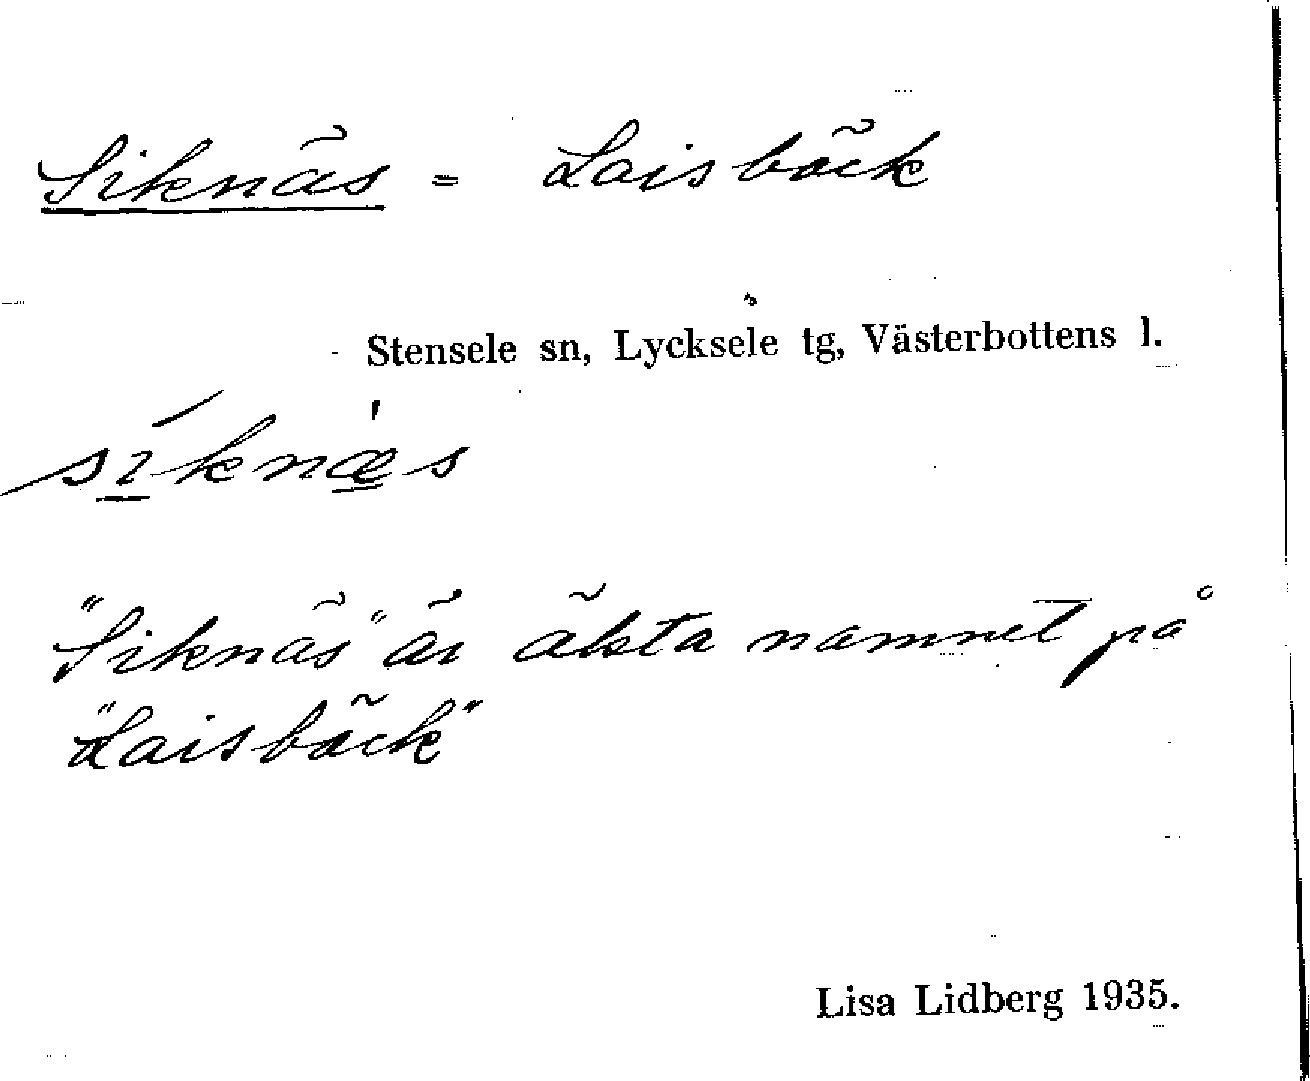 Siknäs = Laisbäck
Stensele sn, Lycksele tg, Västerbottens l.
síknæ̀s
"Siknäs" är äkta namnet på
"Laisbäck"
Lisa Lidberg 1935.